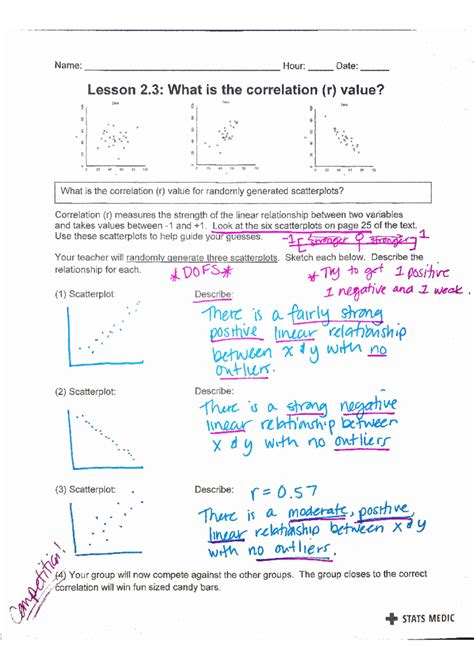 Name: Hour: Date:
Lesson 2.3: What is the correlation (r) value?
What is the correlation (r) value for randomly generated scatterplots?
Correlation (r) measures the strength of the linear relationship between two variables
and takes values between -1 and +1. Look at the six scatterplots on page 25 of the text.
Use these scatterplots to help guide your guesses.
-1 stronger 0 stronger 1
Your teacher will randomly generate three scatterplots. Sketch each below. Describe the
relationship for each.
*DOFS*
* Try to get 1 positive
1 negative and 1 weak.
(1) Scatterplot: Describe:
There is a fairly strong
positive linear relationship
between x & y with no
outliers.
(2) Scatterplot: Describe:
There is a strong negative
linear relationship between
x & y with no outliers
(3) Scatterplot: Describe: r = 0.57
There is a moderate, positive,
linear relationship between x & y
with no outliers.
Competition!
(4) Your group will now compete against the other groups. The group closest to the correct
correlation will win fun sized candy bars.
STATS MEDIC